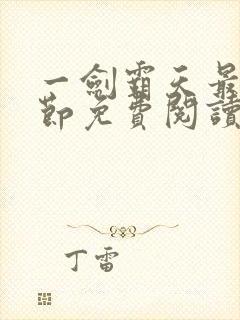 一劍霸天最
節免費閱讀
丁雷